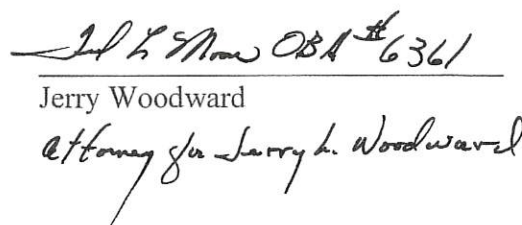 L Moore OBA #6361
Jerry Woodward
Attorney for Jerry L. Woodward